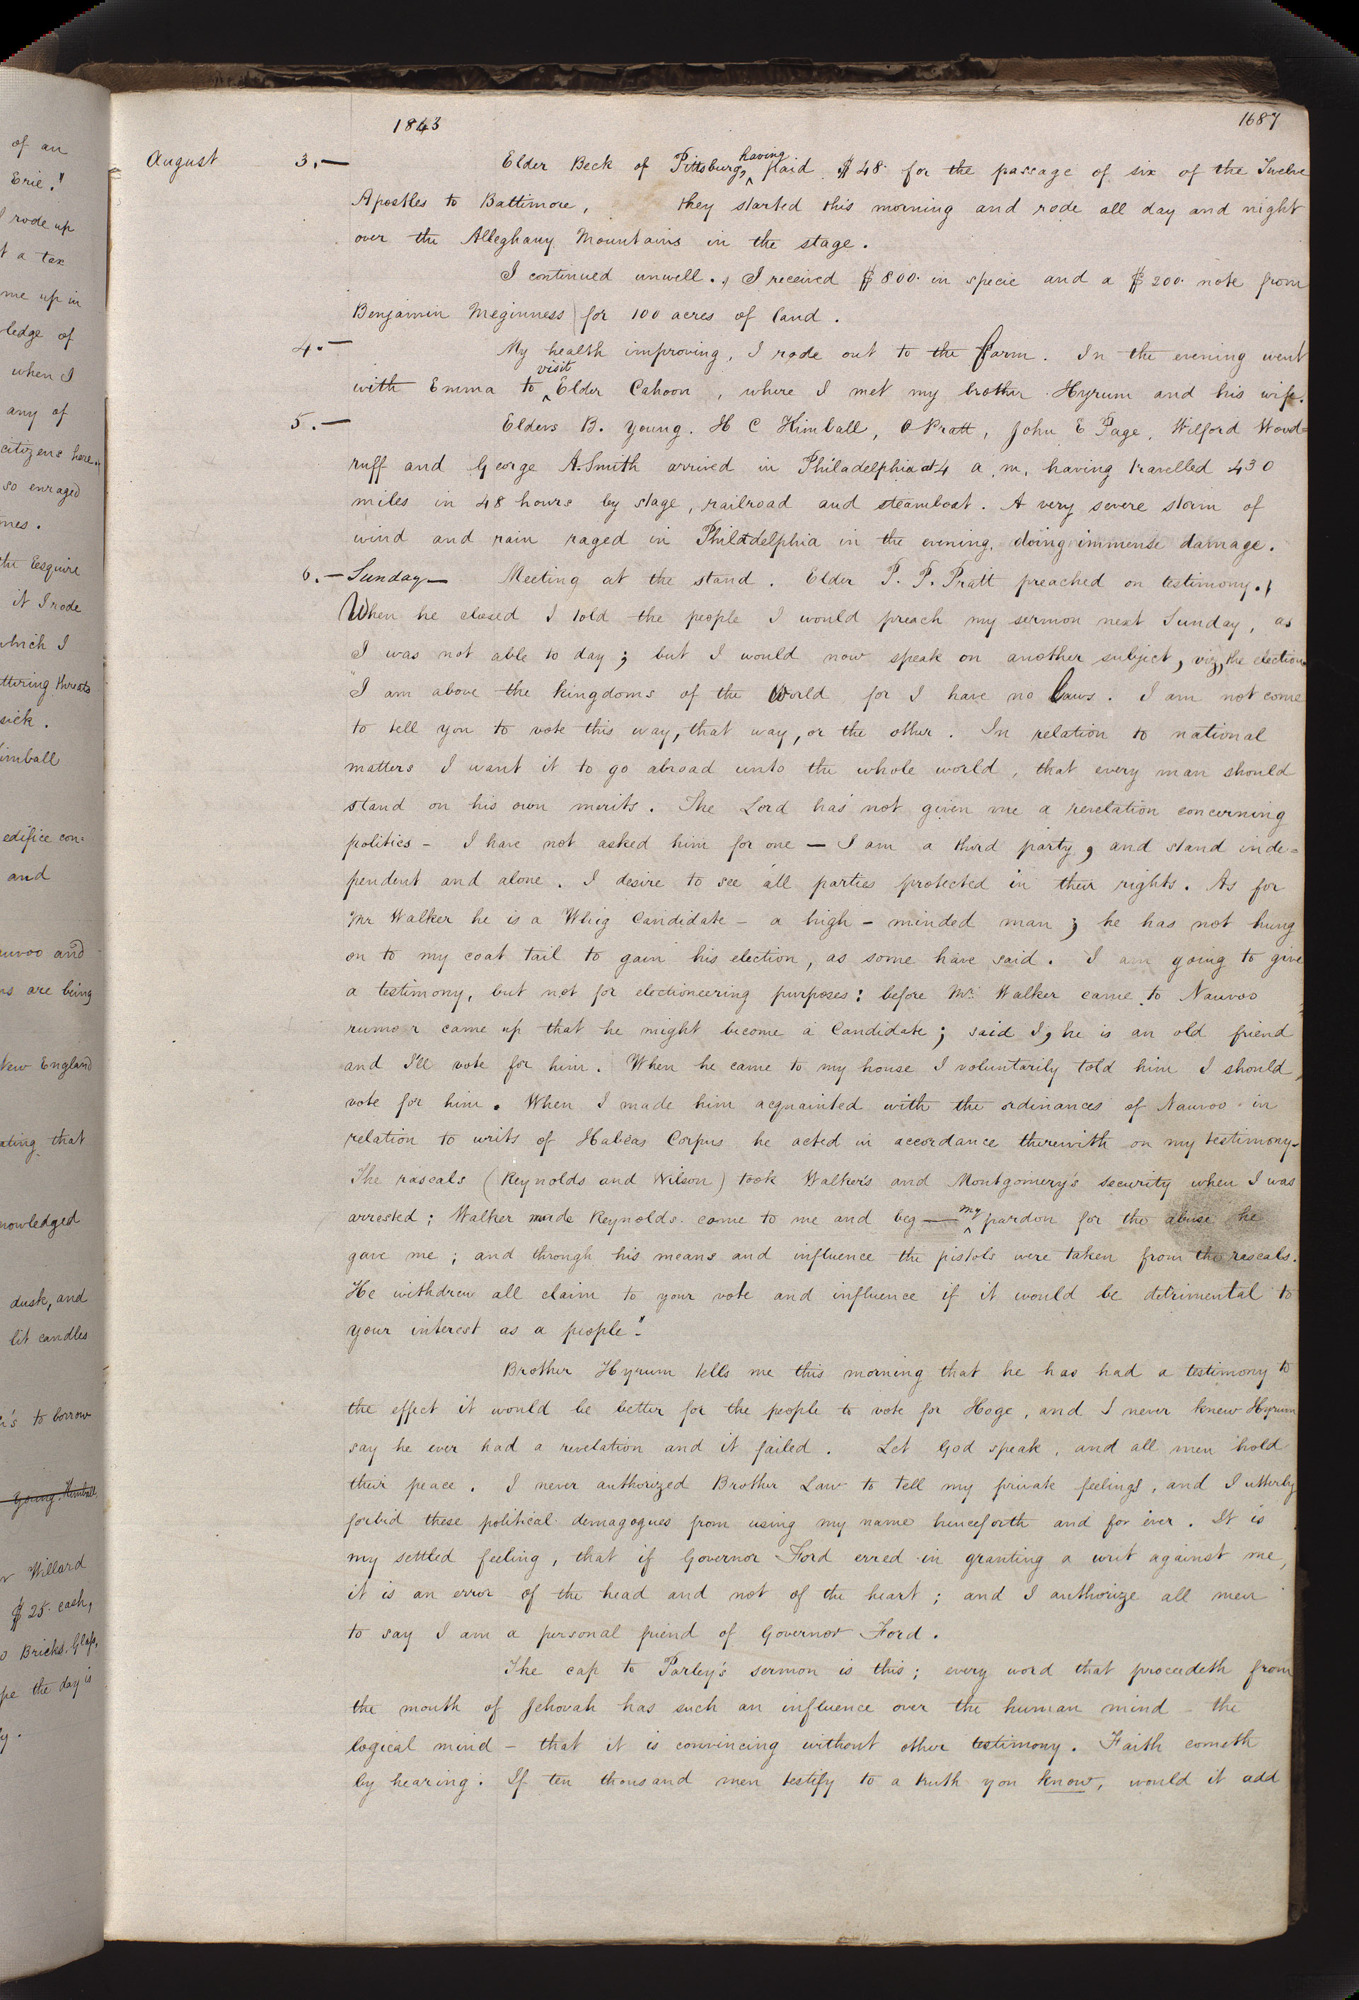 of an
Erie."
I rode up
t a tax
me up in
ledge of
when I
any of
citizens here.
so enraged
mes.
the Esquire
it I rode
which I
ttering threats
sick.
imball
edifice con=
and
auvoo and
ns are being
New England
ating that
nowledged
dusk, and
lit candles
's to borrow
Young. Kimball
Willard
$25. cash,
Bricks. Glass,
pe the day is
y.
1843
1687
August 3.— Elder Beck of Pittsburg, having paid $48. for the passage of six of the Twelve
Apostles to Baltimore, they started this morning and rode all day and night
over the Alleghany Mountains in the stage.
I continued unwell., I received $800. in specie and a $200. note from
Benjamin Meginness for 100 acres of land.
4.— My health improving, I rode out to the farm. In the evening went
with Emma to visit Elder Cahoon, where I met my brother Hyrum and his wife.
5.— Elders B. Young. H C Kimball, O Pratt, John E Page, Wilford Wood=
ruff and George A. Smith arrived in Philadelphia at 4 a.m. having travelled 430
miles in 48 hours by stage, railroad and steamboat. A very severe storm of
wind and rain raged in Philadelphia in the evening, doing immense damage.
6.— Sunday— Meeting at the stand. Elder P. P. Pratt preached on testimony.
When he closed I told the people I would preach my sermon next Sunday, as
I was not able to day; but I would now speak on another subject, viz, the election
"I am above the kingdoms of the World for I have no Laws. I am not come
to tell you to vote this way, that way, or the other. In relation to national
matters I want it to go abroad unto the whole world, that every man should
stand on his own merits. The Lord has not given me a revelation concerning
politics — I have not asked him for one — I am a third party, and stand inde=
pendent and alone. I desire to see all parties protected in their rights. As for
Mr Walker he is a Whig Candidate — a high-minded man; he has not hung
on to my coat tail to gain his election, as some have said. I am going to give
a testimony, but not for electioneering purposes: before Mr. Walker came to Nauvoo
rumor came up that he might become a Candidate; said I, he is an old friend
and I'll vote for him. When he came to my house I voluntarily told him I should
vote for him. When I made him acquainted with the ordinances of Nauvoo in
relation to writs of Habeas Corpus he acted in accordance therewith on my testimony—
The rascals (Reynolds and Wilson) took Walker's and Montgomery's security when I was
arrested; Walker made Reynolds come to me and beg — my pardon for the abuse he
gave me; and through his means and influence the pistols were taken from the rascals.
He withdrew all claim to your vote and influence if it would be detrimental to
your interest as a people."
Brother Hyrum tells me this morning that he has had a testimony to
the effect it would be better for the people to vote for Hoge, and I never knew Hyrum
say he ever had a revelation and it failed. Let God speak, and all men hold
their peace. I never authorized Brother Law to tell my private feelings, and I utterly
forbid these political demagogues from using my name henceforth and for ever. It is
my settled feeling, that if Governor Ford erred in granting a writ against me,
it is an error of the head and not of the heart; and I authorize all men
to say I am a personal friend of Governor Ford.
The cap to Parley's sermon is this; every word that proceedeth from
the mouth of Jehovah has such an influence over the human mind — the
logical mind — that it is convincing without other testimony. Faith cometh
by hearing. If ten thousand men testify to a truth you know, would it add